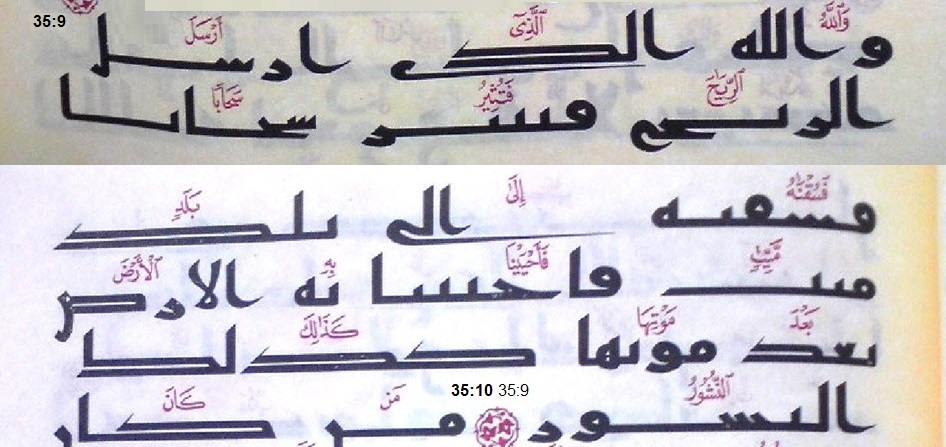 35:9
وَٱللَّهُ ٱلَّذِىٓ أَرْسَلَ
والله الذى ارسل
ٱلرِّيَٰحَ فَتُثِيرُ سَحَابًا
الريح فتثير سحابا
فَسُقْنَٰهُ إِلَىٰ بَلَدٍ
فسقنه الى بلد
مَّيِّتٍ فَأَحْيَيْنَا بِهِ ٱلْأَرْضَ
ميت فاحيينا به الارض
بَعْدَ مَوْتِهَا كَذَٰلِكَ
بعد موتها كذلك
ٱلنُّشُورُ 35:10 35:9 مَن كَانَ
النشور من كان